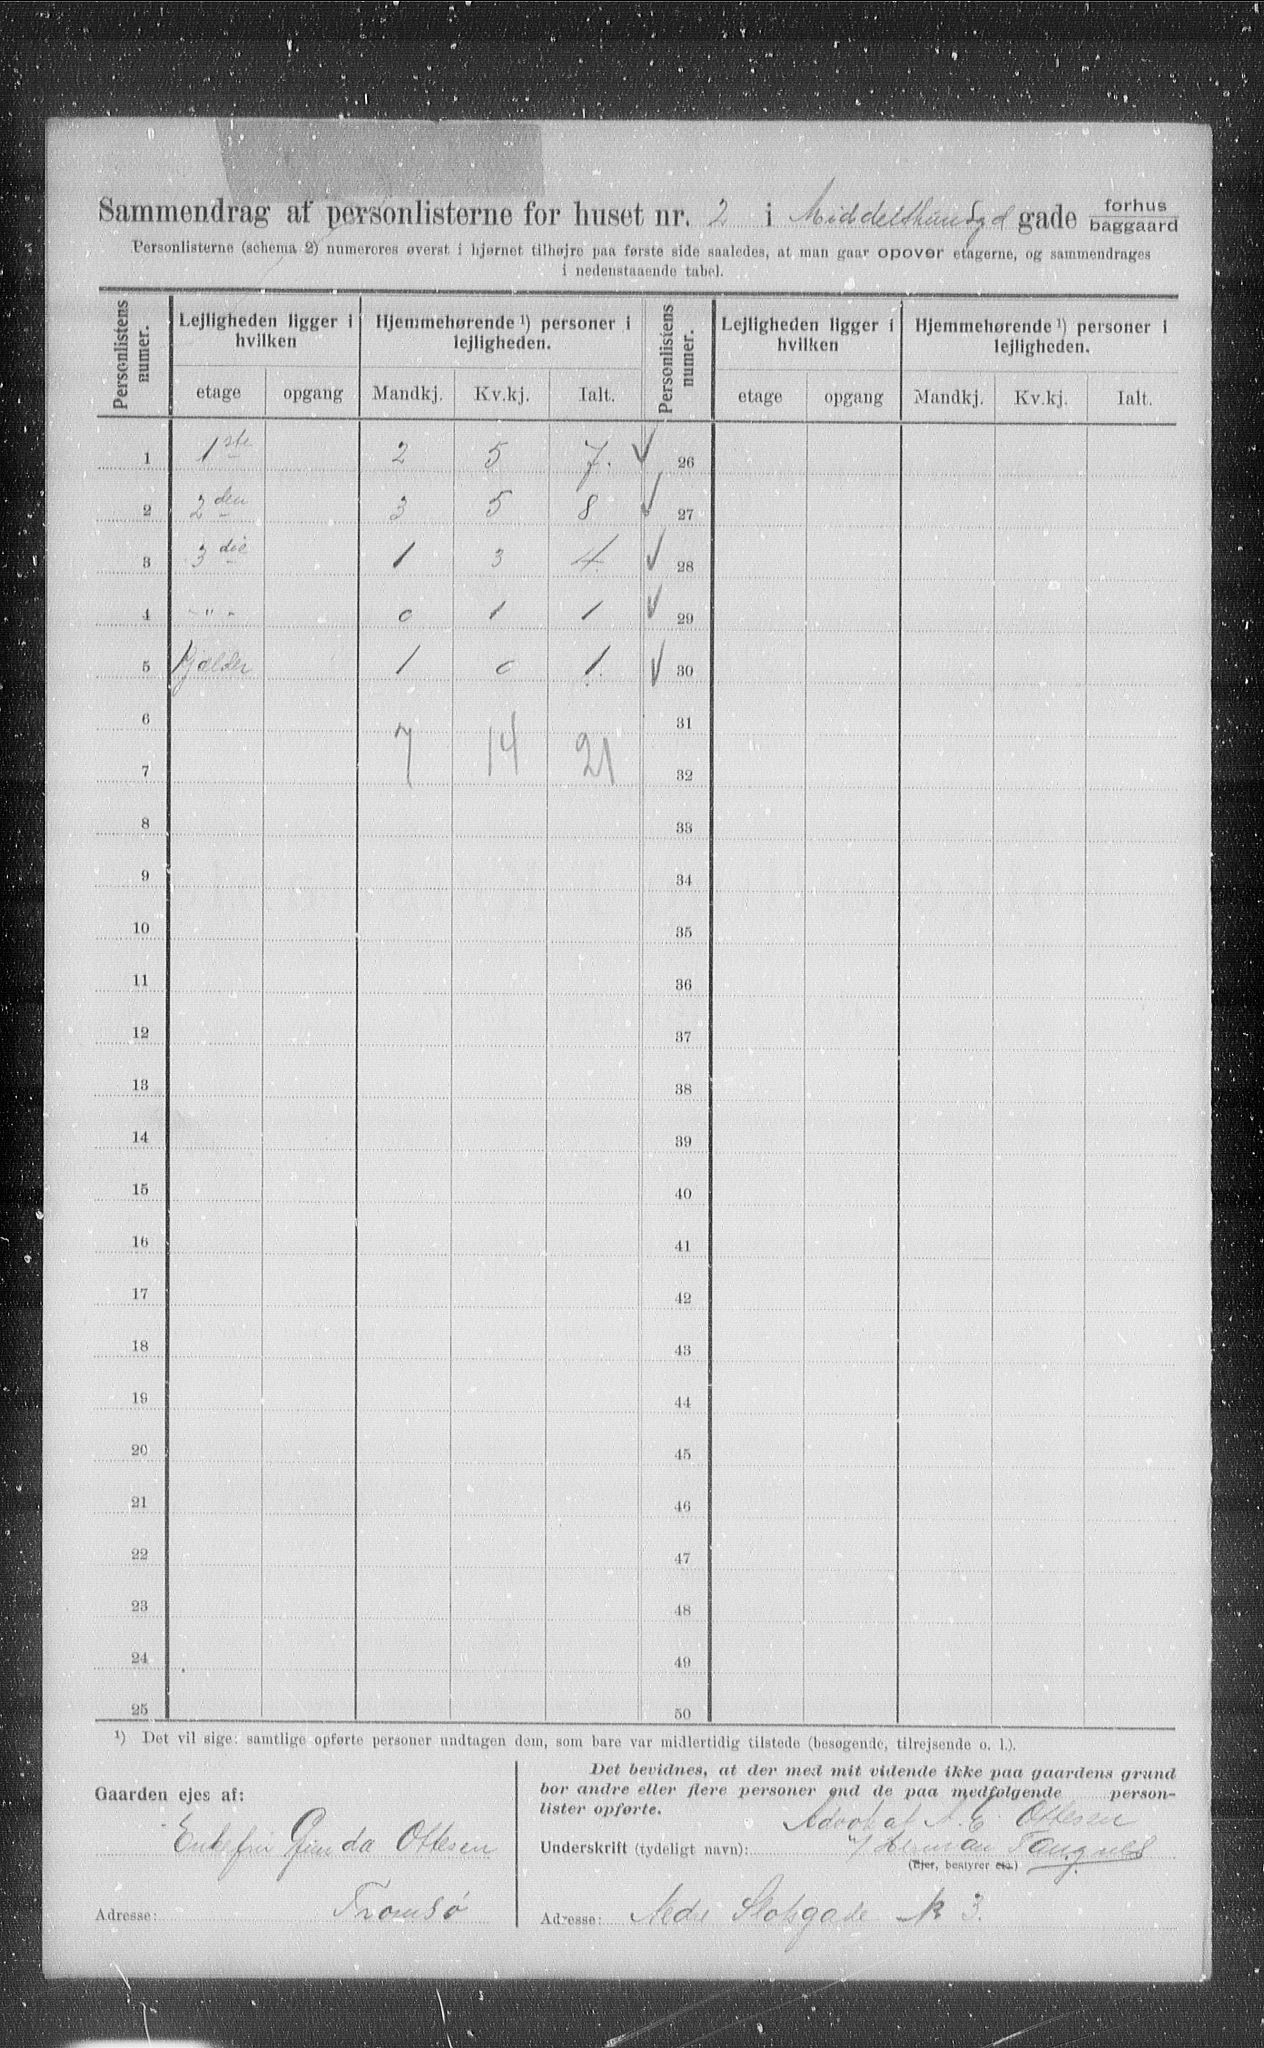 Sammendrag af personlisterne for huset nr. 2 i Middelthunsgd gade forhus baggaard
Personlisterne (schema 2) numereres øverst i hjørnet tilhøjre paa første side saaledes, at man gaar opover etagerne, og sammendrages
i nedenstaaende tabel.
Personlistens numer. Lejligheden ligger i hvilken Hjemmehørende ¹) personer i lejligheden. Personlistens numer. Lejligheden ligger i hvilken Hjemmehørende ¹) personer i lejligheden.
etage opgang Mandkj. Kv.kj. Ialt. etage opgang Mandkj. Kv.kj. Ialt.
1 1ste 2 5 7. ✓ 26
2 2den 3 5 8 ✓ 27
3 3die 1 3 4. ✓ 28
4 - " - 0 1 1 ✓ 29
5 Kjælder 1 0 1. ✓ 30
6 31
7 14 21
7 32
8 33
9 34
10 35
11 36
12 37
13 38
14 39
15 40
16 41
17 42
18 43
19 44
20 45
21 46
22 47
23 48
24 49
25 50
¹) Det vil sige: samtlige opførte personer undtagen dem, som bare var midlertidig tilstede (besøgende, tilrejsende o. l.).
Gaarden ejes af:
Enkefru Gunda Ottesen
Adresse: Tromsø
Det bevidnes, at der med mit vidende ikke paa gaardens grund
bor andre eller flere personer end de paa medfølgende person-
lister opførte.
Advokat A. E. Ottesen
Underskrift (tydeligt navn): v/ Herman Tangnes
(Ejer, bestyrer etc.)
Adresse: Nedre Slotsgade № 3.